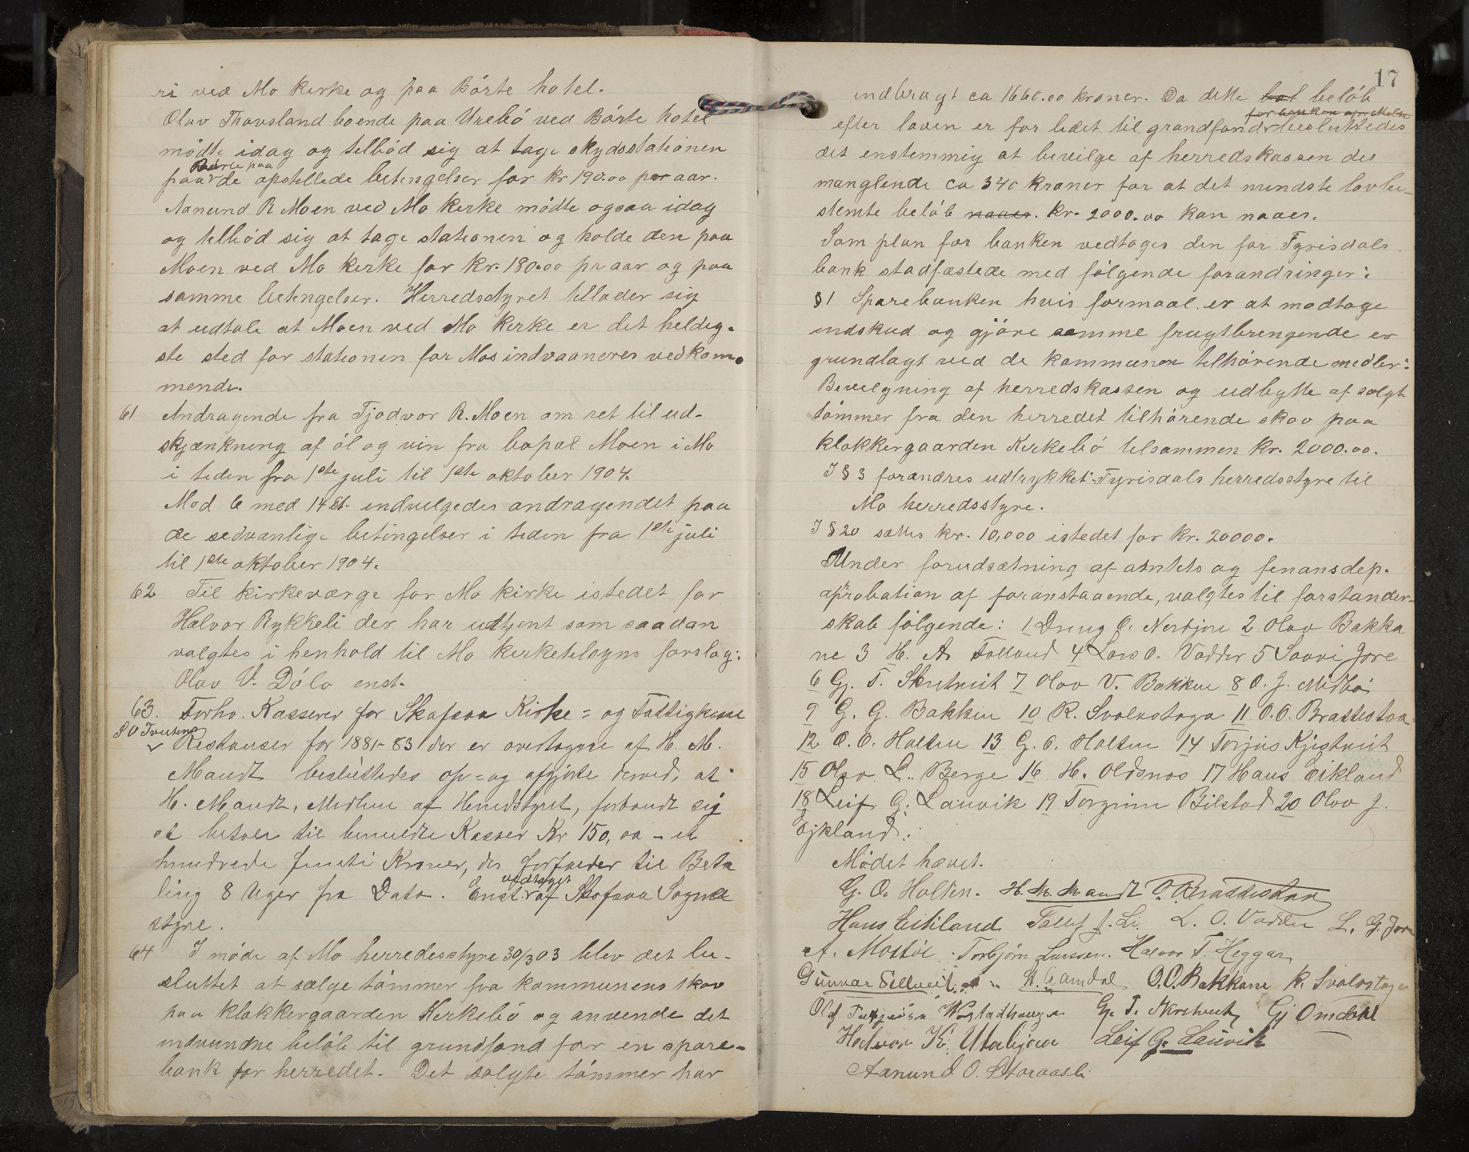 ri ved Mo kirke og paa Børte hotel.
Olav Travsland boende paa Urebö ved Børte hotel
mödte idag og tilböd sig at tage skydsstationen
Børte paa
paa de opstillede betingelser for kr 190.00 pr aar.
Aanund R Moen ved Mo kirke mödte ogsaa idag
og tilböd sig at tage stationen og holde den paa
Moen ved Mo kirke for kr. 180.00 pr aar og paa
samme betingelser. Herredsstyret tillader sig
at udtale at Moen ved Mo kirke er det heldig-
ste sted for stationen for Mos indvaaneres vedkom-
mende.
61 Andragende fra Tjodvor R. Moen om ret til ud-
skjænkning af öl og vin fra bopæl Moen i Mo
i tiden fra 1ste juli til 1ste oktober 1904.
Mod 6 med 14 st. indvilgedes andragendet paa
de sedvanlige betingelser i tiden fra 1ste juli
til 1ste oktober 1904.
62 Til kirkeværge for Mo kirke istedet for
Halvor Rykkeli der har udtjent som saadan
valgtes i henhold til Mo kirketilsyns forslag:
Olav V. Dölo enst.
63. Forhv. Kasserer for Skafsaa Kirke- og Fattigkasse
S O
Restanser for 1881-83 der er overtagne af H. M.
Mandt besluttedes op- og afgjorte derved, at
H. Mandt, Medlem af Herredstyret, forbandt sig
at betale til bemeldte Kasser Kr 150,00 - et
hundrede femti Kroner, der forfalder til Beta
ling 8 Uger fra Dato. Enst. vedtaget af Skafsaa Sogne
styre.
64 I möde af Mo herredsstyre 30/3 03 blev det be-
sluttet at sælge tömmer fra kommunens skov
paa klokkergaarden Kirkebö og anvende det
indvundne belöb til grundfond for en spare-
bank for herredet. Det solgte tömmer har
17
indbragt ca 1660.00 kroner. Da dette belöb
for banken
efter loven er for lidet til grundfond besluttedes
det enstemmig at bevilge af herredskassen det
manglende ca 340 kroner for at det mindste lovbe-
stemte belöb naaes. kr. 2000.00 kan naaes.
Som plan for banken vedtoges den for Fyrisdals
bank stadfæstede med fölgende forandringer:
§1 Sparebanken hvis formaal er at modtage
indskud og gjöre samme frugtbringende er
grundlagt ved de kommunen tilhörende midler:
Bevilgning af herredskassen og udbytte af solgt
tömmer fra den herredet tilhörende skov paa
klokkergaarden Kirkebö tilsammen kr. 2000.00.
I §3 forandres udtrykket: Fyrisdals herredsstyre til
Mo herredsstyre.
I §20 sættes kr. 10,000 istedet for kr. 20000.
Under forudsætning af amtets og finansdep.
aprobation af foranstaaende, valgtes til forstander-
skab fölgende: 1 O. 2 Olav Bakka
ne 3 H. A. Folland 4 Lars O. Vadder 5 Saavi Jore
6 Gj. T. Skretveit 7 Olav V. Bakken 8 O. J.
9 G. G. Bakken 10 K. Svalastoga 11 O. O. Brattestaa
12 O. O. Holten 13 G. O. Holten 14 Torjus Kjestveit
15 Olav L. Berge 16 H. Oldsnes 17 Hans Eikland
18 Leif G. Lauvik 19 Torgrim Bilstad 20 Olav J.
Ejkland.
Mödet hævet.
G. O. Holten. H. M. Mandt O. Brattestaa
Hans Eikland J. Li. L. O. Vadder L. G. Jore
A. Torbjörn Halvor T. Heggar
Gunnar Selleveit A. Gamdal O. O. Bakkane K. Svalastoga
G. T. Skretveit Gj Omdal
Halvor K. Leif G. Lauvik
Aanund O. Storaasli